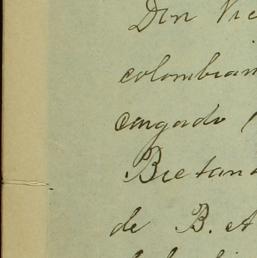 Don Vic
colombian
cargado
Bretan
de B. et